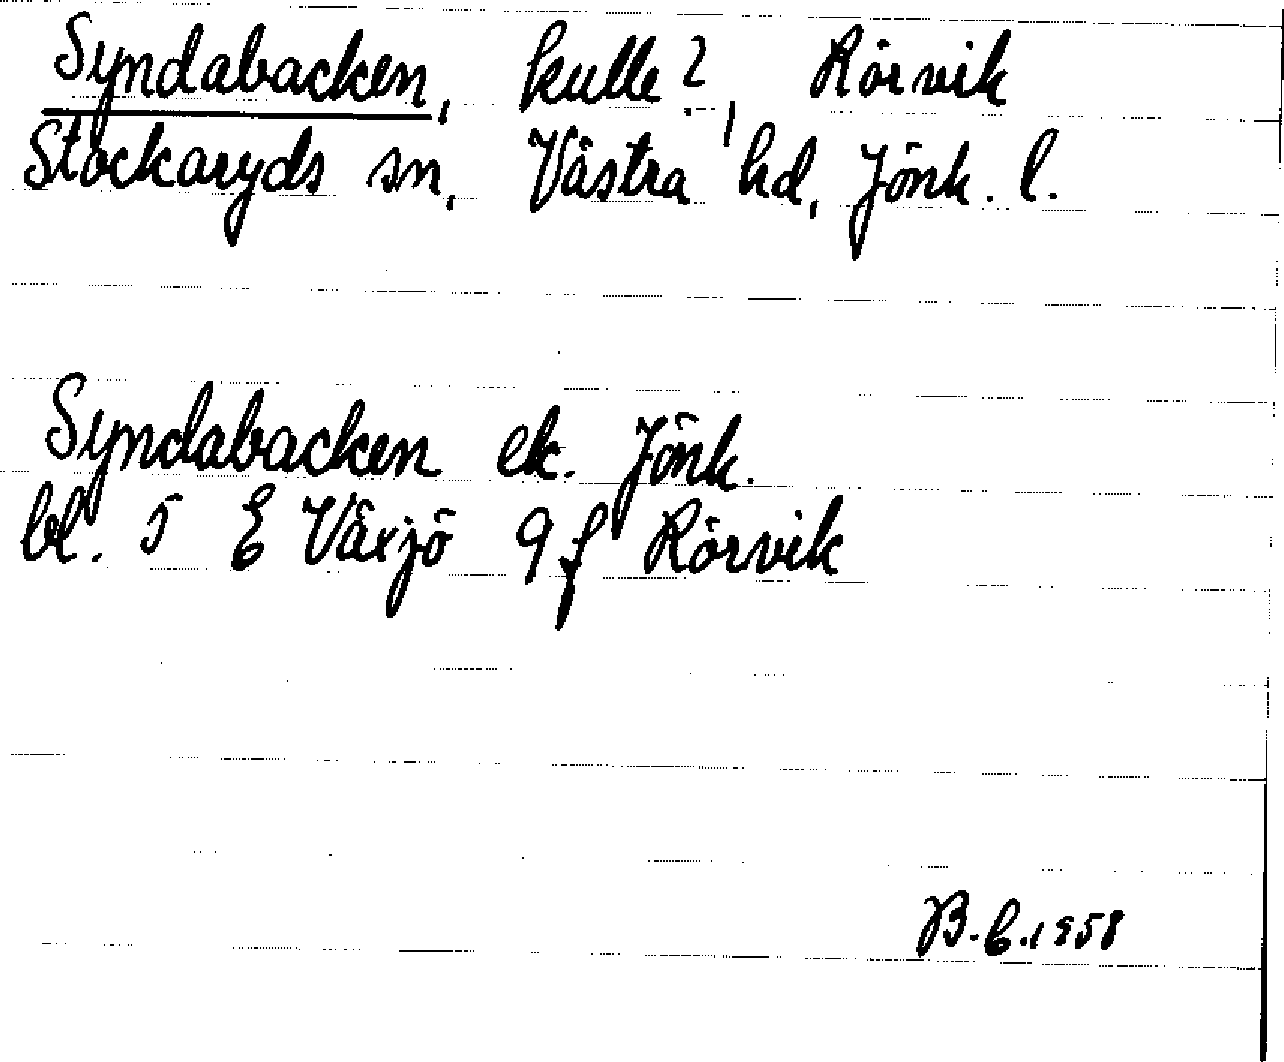 Syndabacken, kulle?, Rörvik
Stockaryds sn, Västra hd, Jönk. l.
Syndabacken ek. Jönk.
bl. 5 E Växjö 9 f Rörvik
B.E.1958